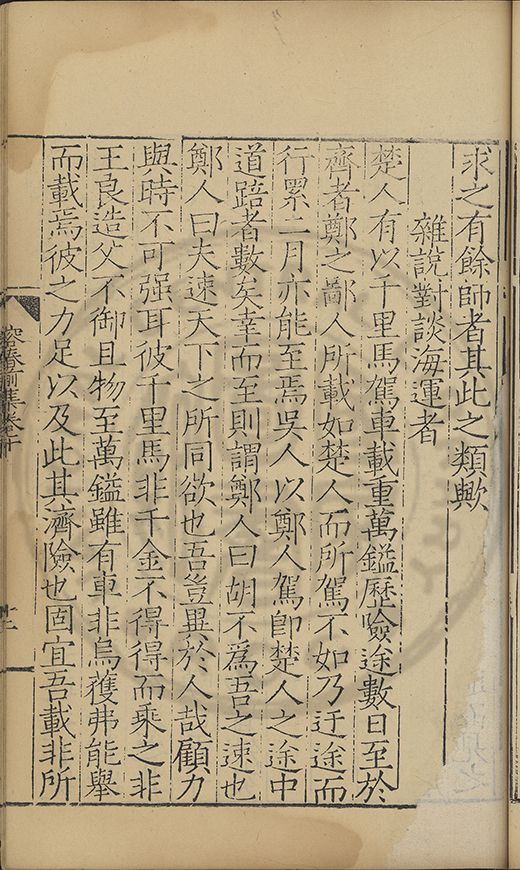 求之有餘師者其此之類歟
雜說對談海運者
楚人有以千里馬駕車載重萬鎰歷嶮途數日至於
齊者鄭之鄙人所載如楚人而所駕不如乃迂途而
行累二月亦能至焉吳人以鄭人駕卽楚人之途中
道踣者數矣幸而至則謂鄭人曰胡不爲吾之速也
鄭人曰夫速天下之所同欲也吾豈異於人哉顧力
與時不可强耳彼千里馬非千金不得得而乘之非
王良造父不御且物至萬鎰雖有車非烏獲弗能舉
而載焉彼之力足以及此其濟險也固宜吾載非所
容春前集卷十